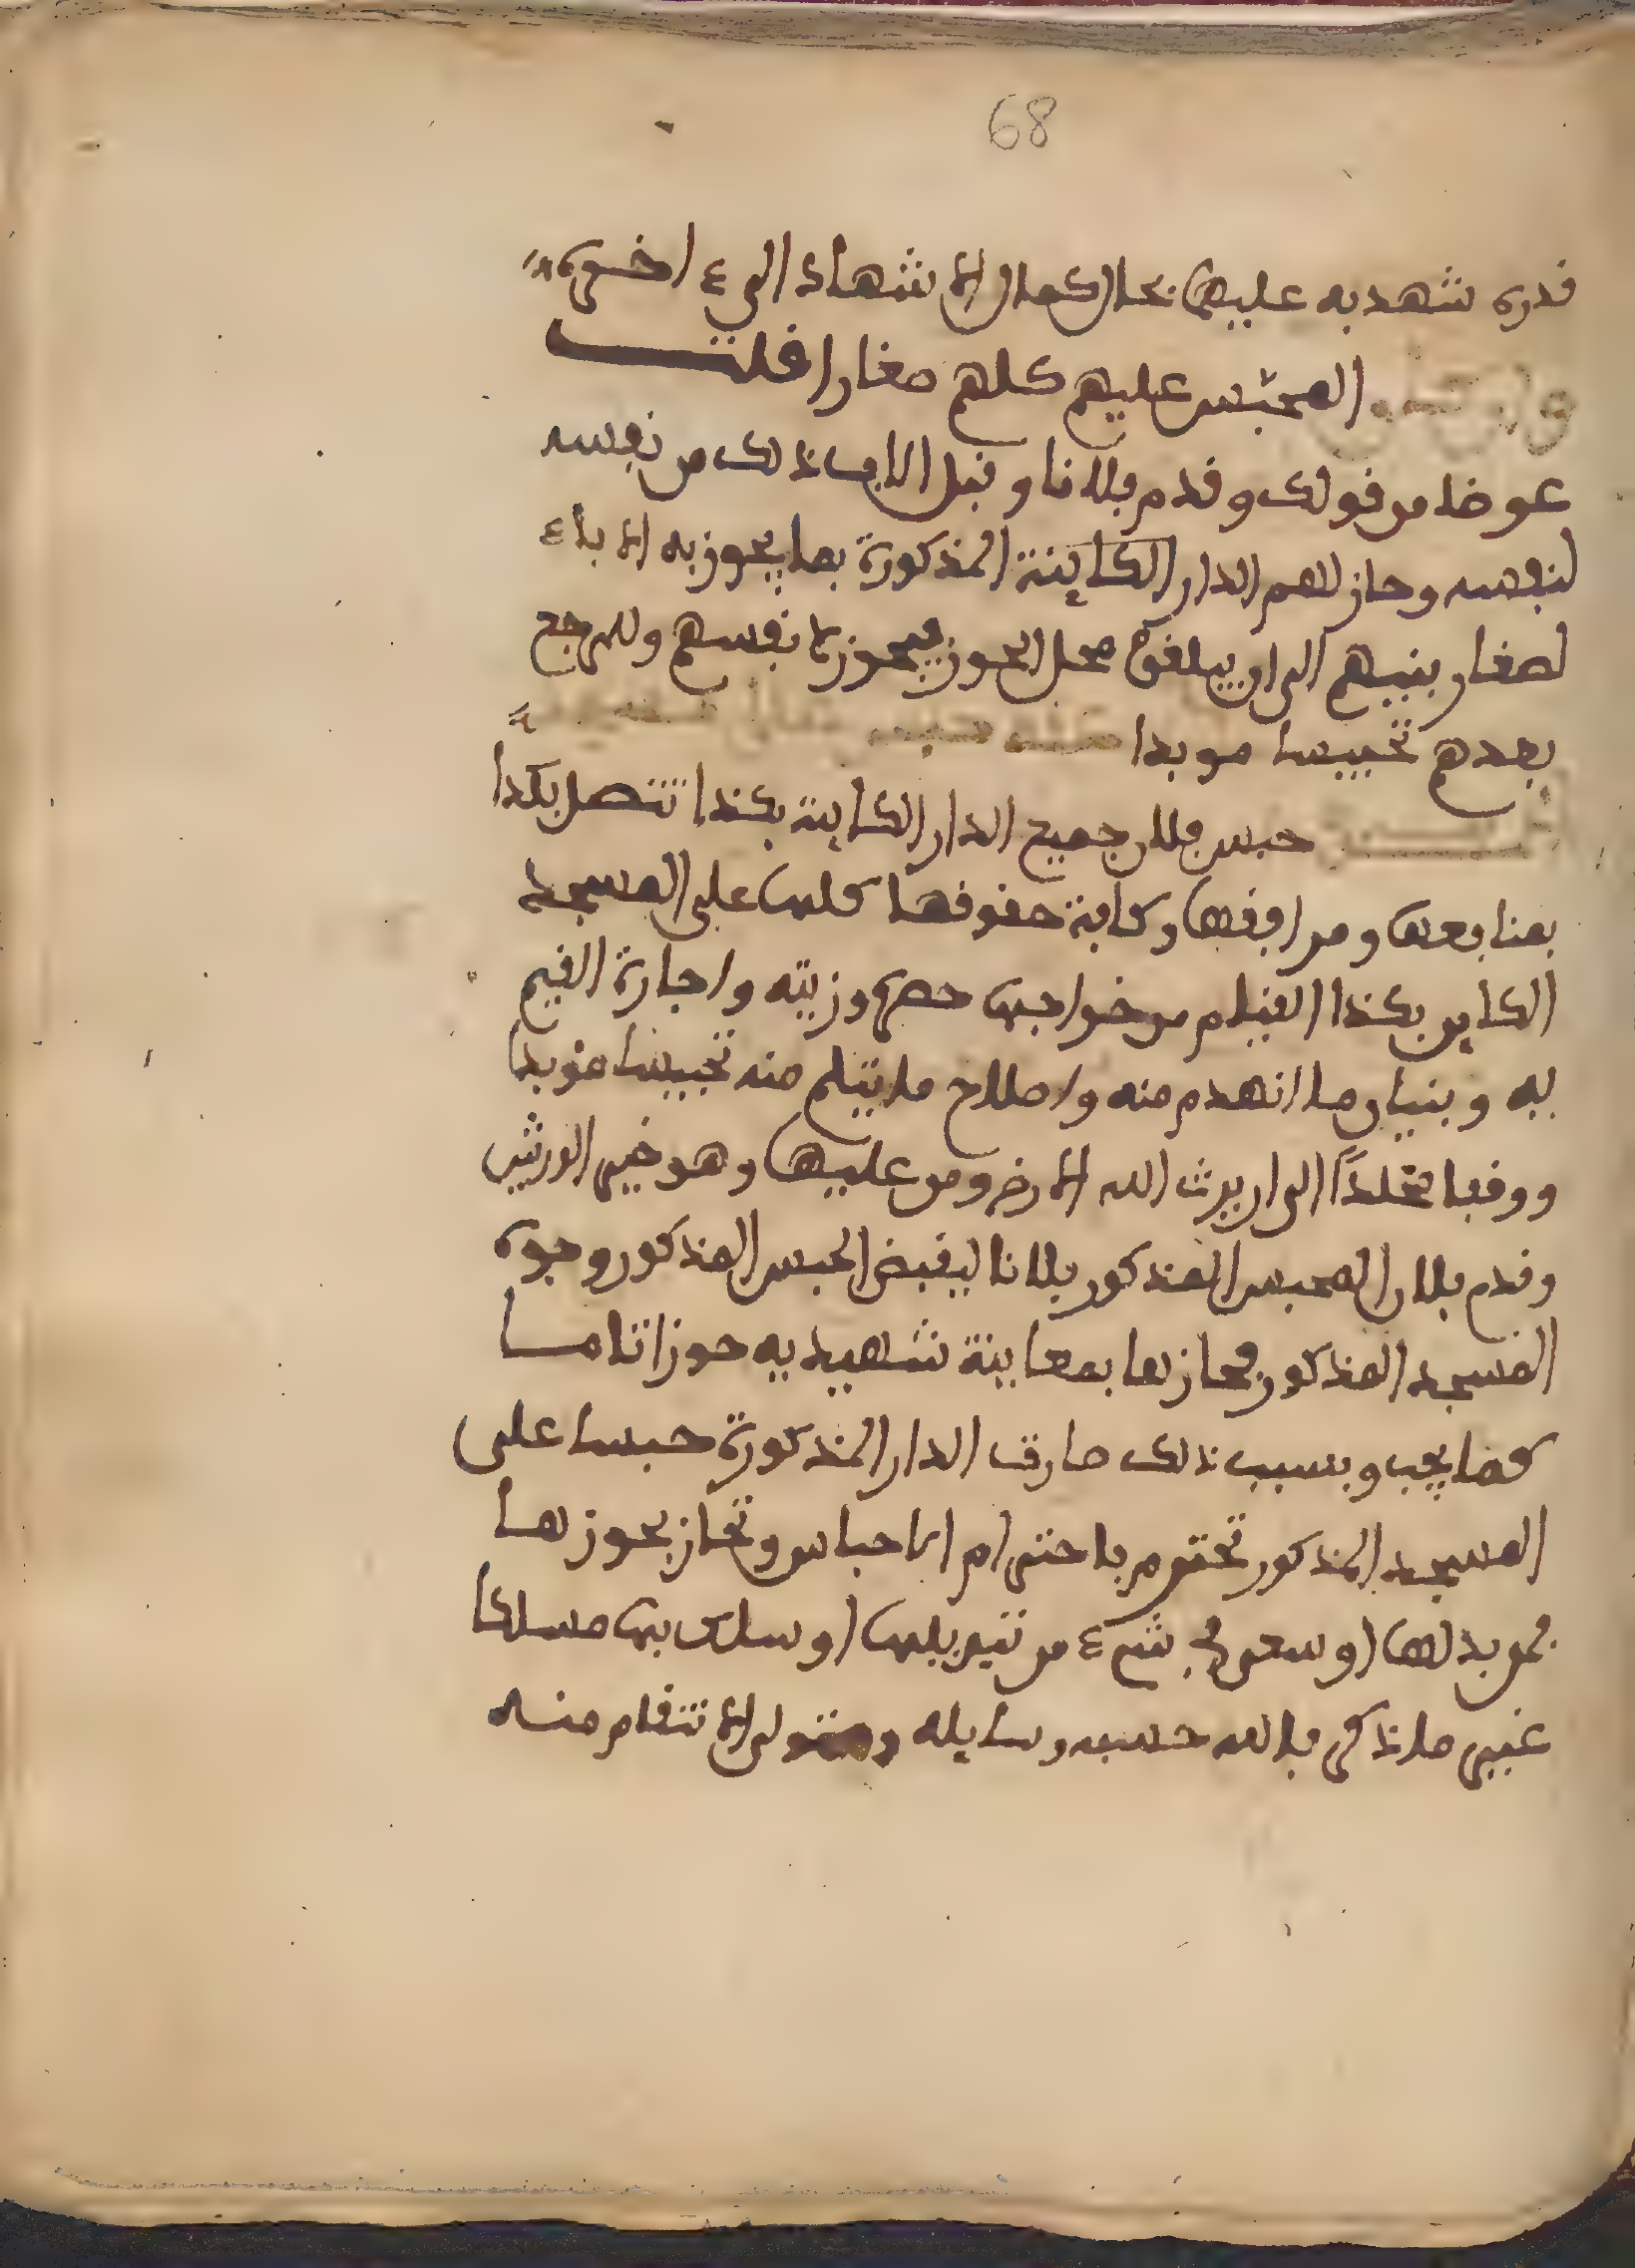 68
قدره شهد به عليهما بحال كمال الاشهاد الىء اخره
المحبّس عليهم كلهم صغارا قلت
عوضا من قولك وقدم فلانا وقبل الاب ذلك من نفسه
لنفسه وحاز لهم الدار الكاينة المذكورة بما يحوز به الاباء
لصغار بنيهم الى ان يبلغوا محل الحوز فيحوز لانفسهم وللمرجع
بعدهم تحبيسا موبدا
حبس فلان جميع الدار الكاينة بكذا تتصل بكذا
بمنافعها ومرافقها وكافة حقوقها كلها على المسجد
الكاين بكذا الفيلم من خواجها حصره وزيته واجارة القيم
به وبنيان ما انهدم منه واصلاح ما يتلم منه تحبيسا موبدا
ووقفا مخلداً الى ان يرث الله الارض ومن عليها وهو خير الورثين
وقدم فلان المحبس المذكور فلانا ليقبض الحبس المذكور وجوه
المسجد المذكور فحازها بمعاينة شهيديه حوزا تاما
كما يجب وبسبب ذلك صارت الدار المذكورة حبسا على
المسجد المذكور تحترم باحترام الاحباس وتحاز بحوزها
فمن بدلها او سعى في شىء من تبديلها او سلك بها مسلكا
غير ما ذكر فالله حسبه وسايله ومتولى الانتقام منه